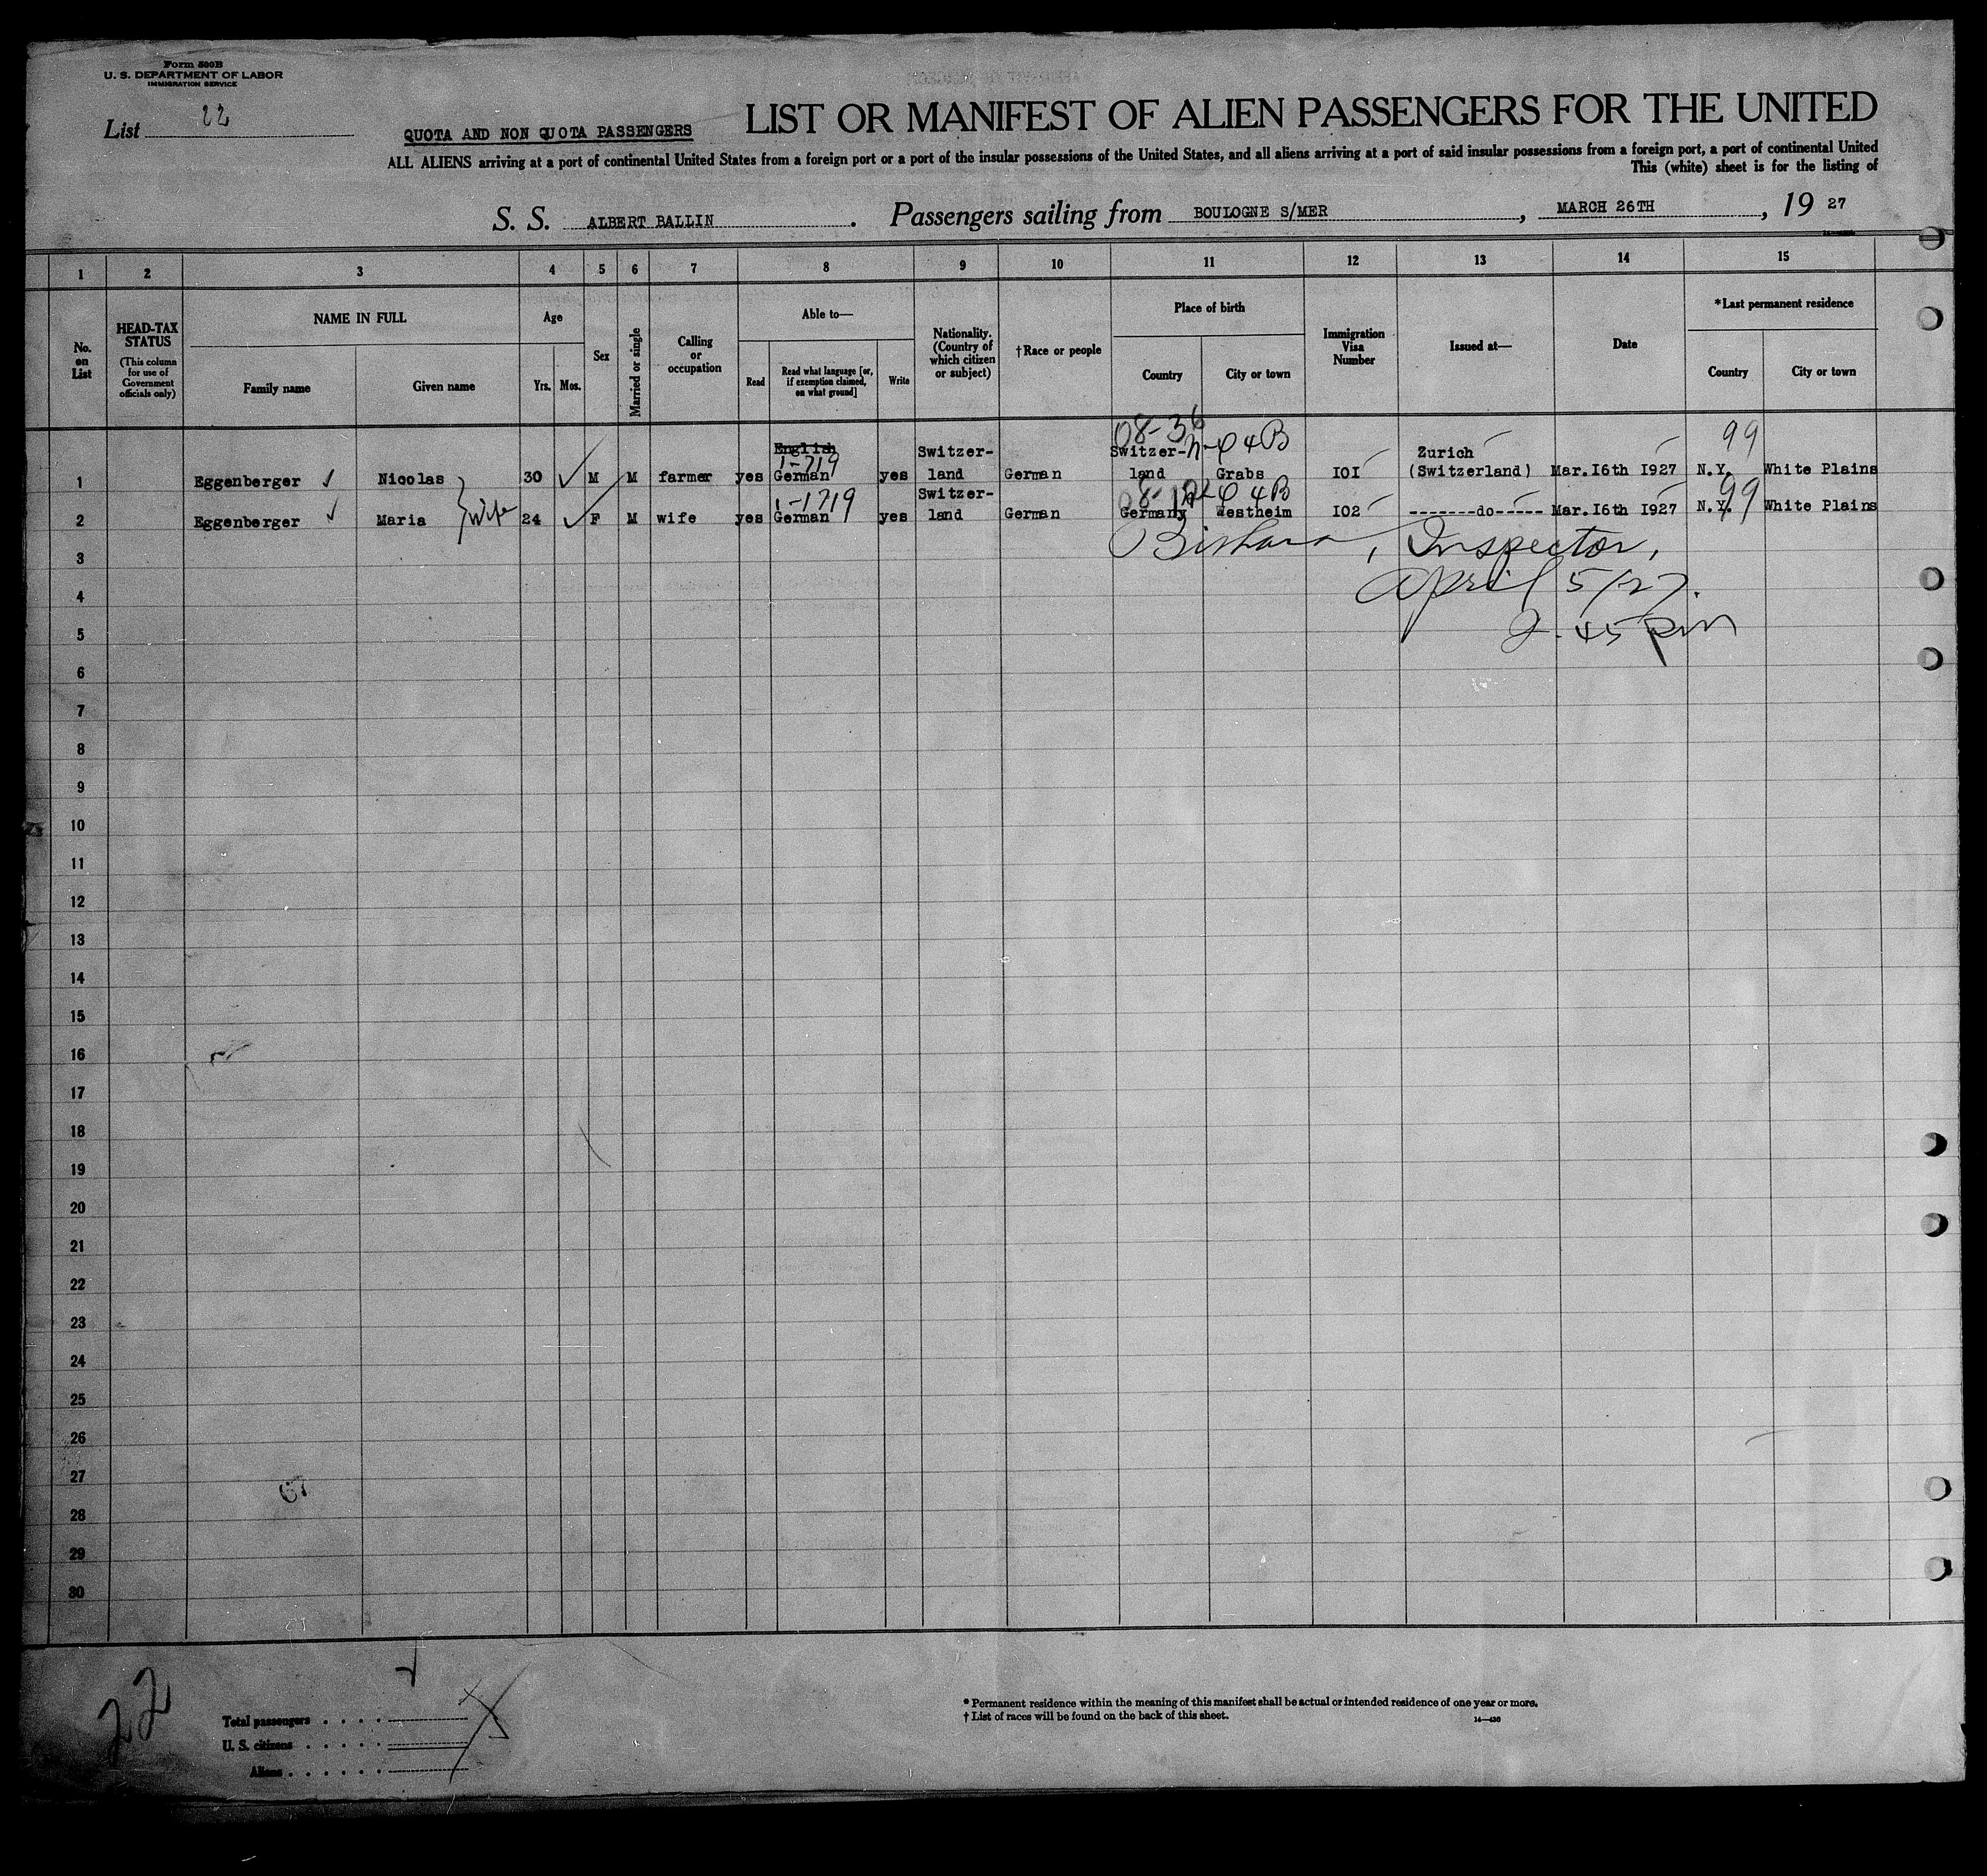 Form 500B
U. S. DEPARTMENT OF LABOR
IMMIGRATION SERVICE
List 22
QUOTA AND NON QUOTA PASSENGERS
LIST OR MANIFEST OF ALIEN PASSENGERS FOR THE UNITED
ALL ALIENS arriving at a port of continental United States from a foreign port or a port of the insular possessions of the United States, and all aliens arriving at a port of said insular possessions from a foreign port, a port of continental United
This (white) sheet is for the listing of
S. S. ALBERT BALLIN. Passengers sailing from BOULOGNE S/MER, MARCH 26TH, 19 27
1 2 3 4 5 6 7 8 9 10 11 12 13 14 15
No. on List
HEAD-TAX STATUS
(This column for use of Government officials only)
NAME IN FULL
Family name
Given name
Age
Yrs. Mos.
Sex
Married or single
Calling or occupation
Able to—
Read
Read what language [or, if exemption claimed, on what ground]
Write
Nationality. (Country of which citizen or subject)
†Race or people
Place of birth
Country
City or town
Immigration Visa Number
Issued at—
Date
*Last permanent residence
Country
City or town
08-36
99
English Switzer- Switzer- Zurich
1-719
1 Eggenberger Nicolas 30 M M farmer yes German yes land German land Grabs IOI (Switzerland) Mar.I6th I927 N.Y. White Plains
1-1719 Switzer- 99
2 Eggenberger Maria Wife 24 F M wife yes German yes land German Germany Westheim IO2 -------do----- Mar.I6th I927 N.Y. White Plains
3 , Inspector,
4 April 5/27.
5 2.45 pm
6
7
8
9
10
11
12
13
14
15
16
17
18
19
20
21
22
23
24
25
26
27
28
29
30
22
Total passengers . . . .
U. S. citizens . . . . .
Aliens . . . . . .
* Permanent residence within the meaning of this manifest shall be actual or intended residence of one year or more.
† List of races will be found on the back of this sheet.
14—430